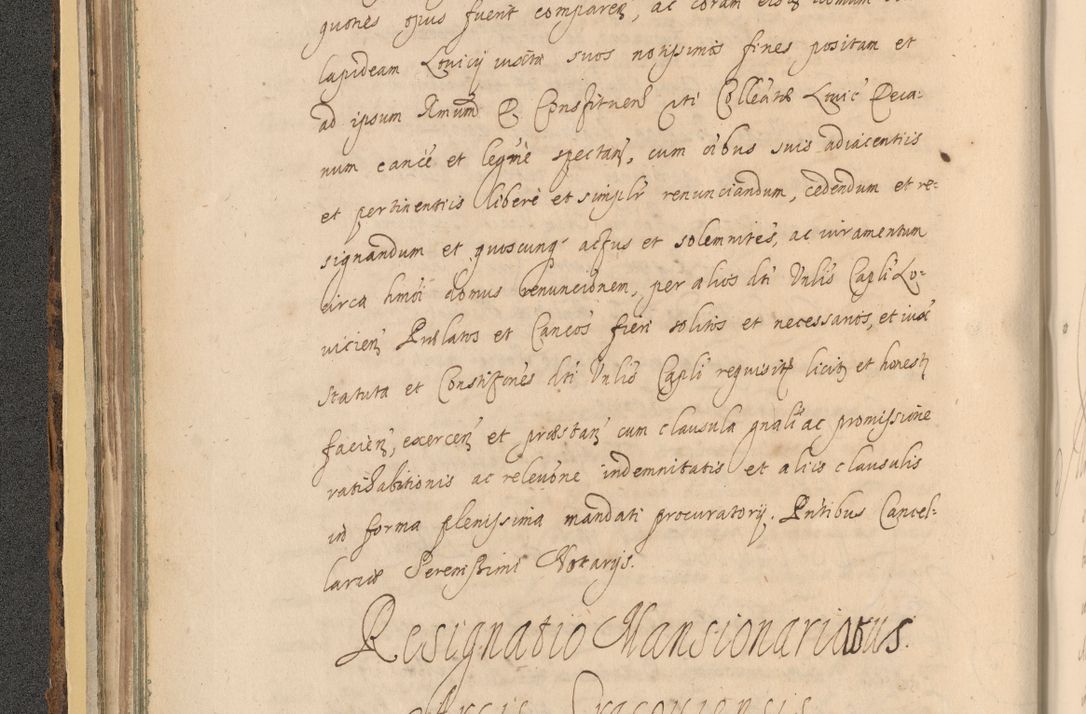 quones opus fuerit comparen, ac coram
lapideam Lovicij iuxta suos notissimos fines positam et
ad ipsum Rmum D Constituen uti Colleatæ Lovic Deca:
num cance et legme spectan, cum oibus suis adiacentiis
et pertinentiis libere et simplr renunciandum, cedendum et re:
signandum et quoscunq actus et solemnites, ac iuramentum
circa hmoi domus renuncionem, per alios dti Vnlis Capli Lo:
vicien Prælatos et Cancos fieri solitos et necessarios, et iuxt
statuta et Constitones dti Vnlis Capli requisit licit et honest
facien, exercen et præstan cum clausula gnali ac promissione
ratihabitionis ac relevone indemnitatis et aliis clausulis
in forma plenissima mandati procuratorij. Pntibus Cancel:
lariæ Serenissimi Notarijs.
Resignatio Mansionariatus.
Arcis Cracoviensis